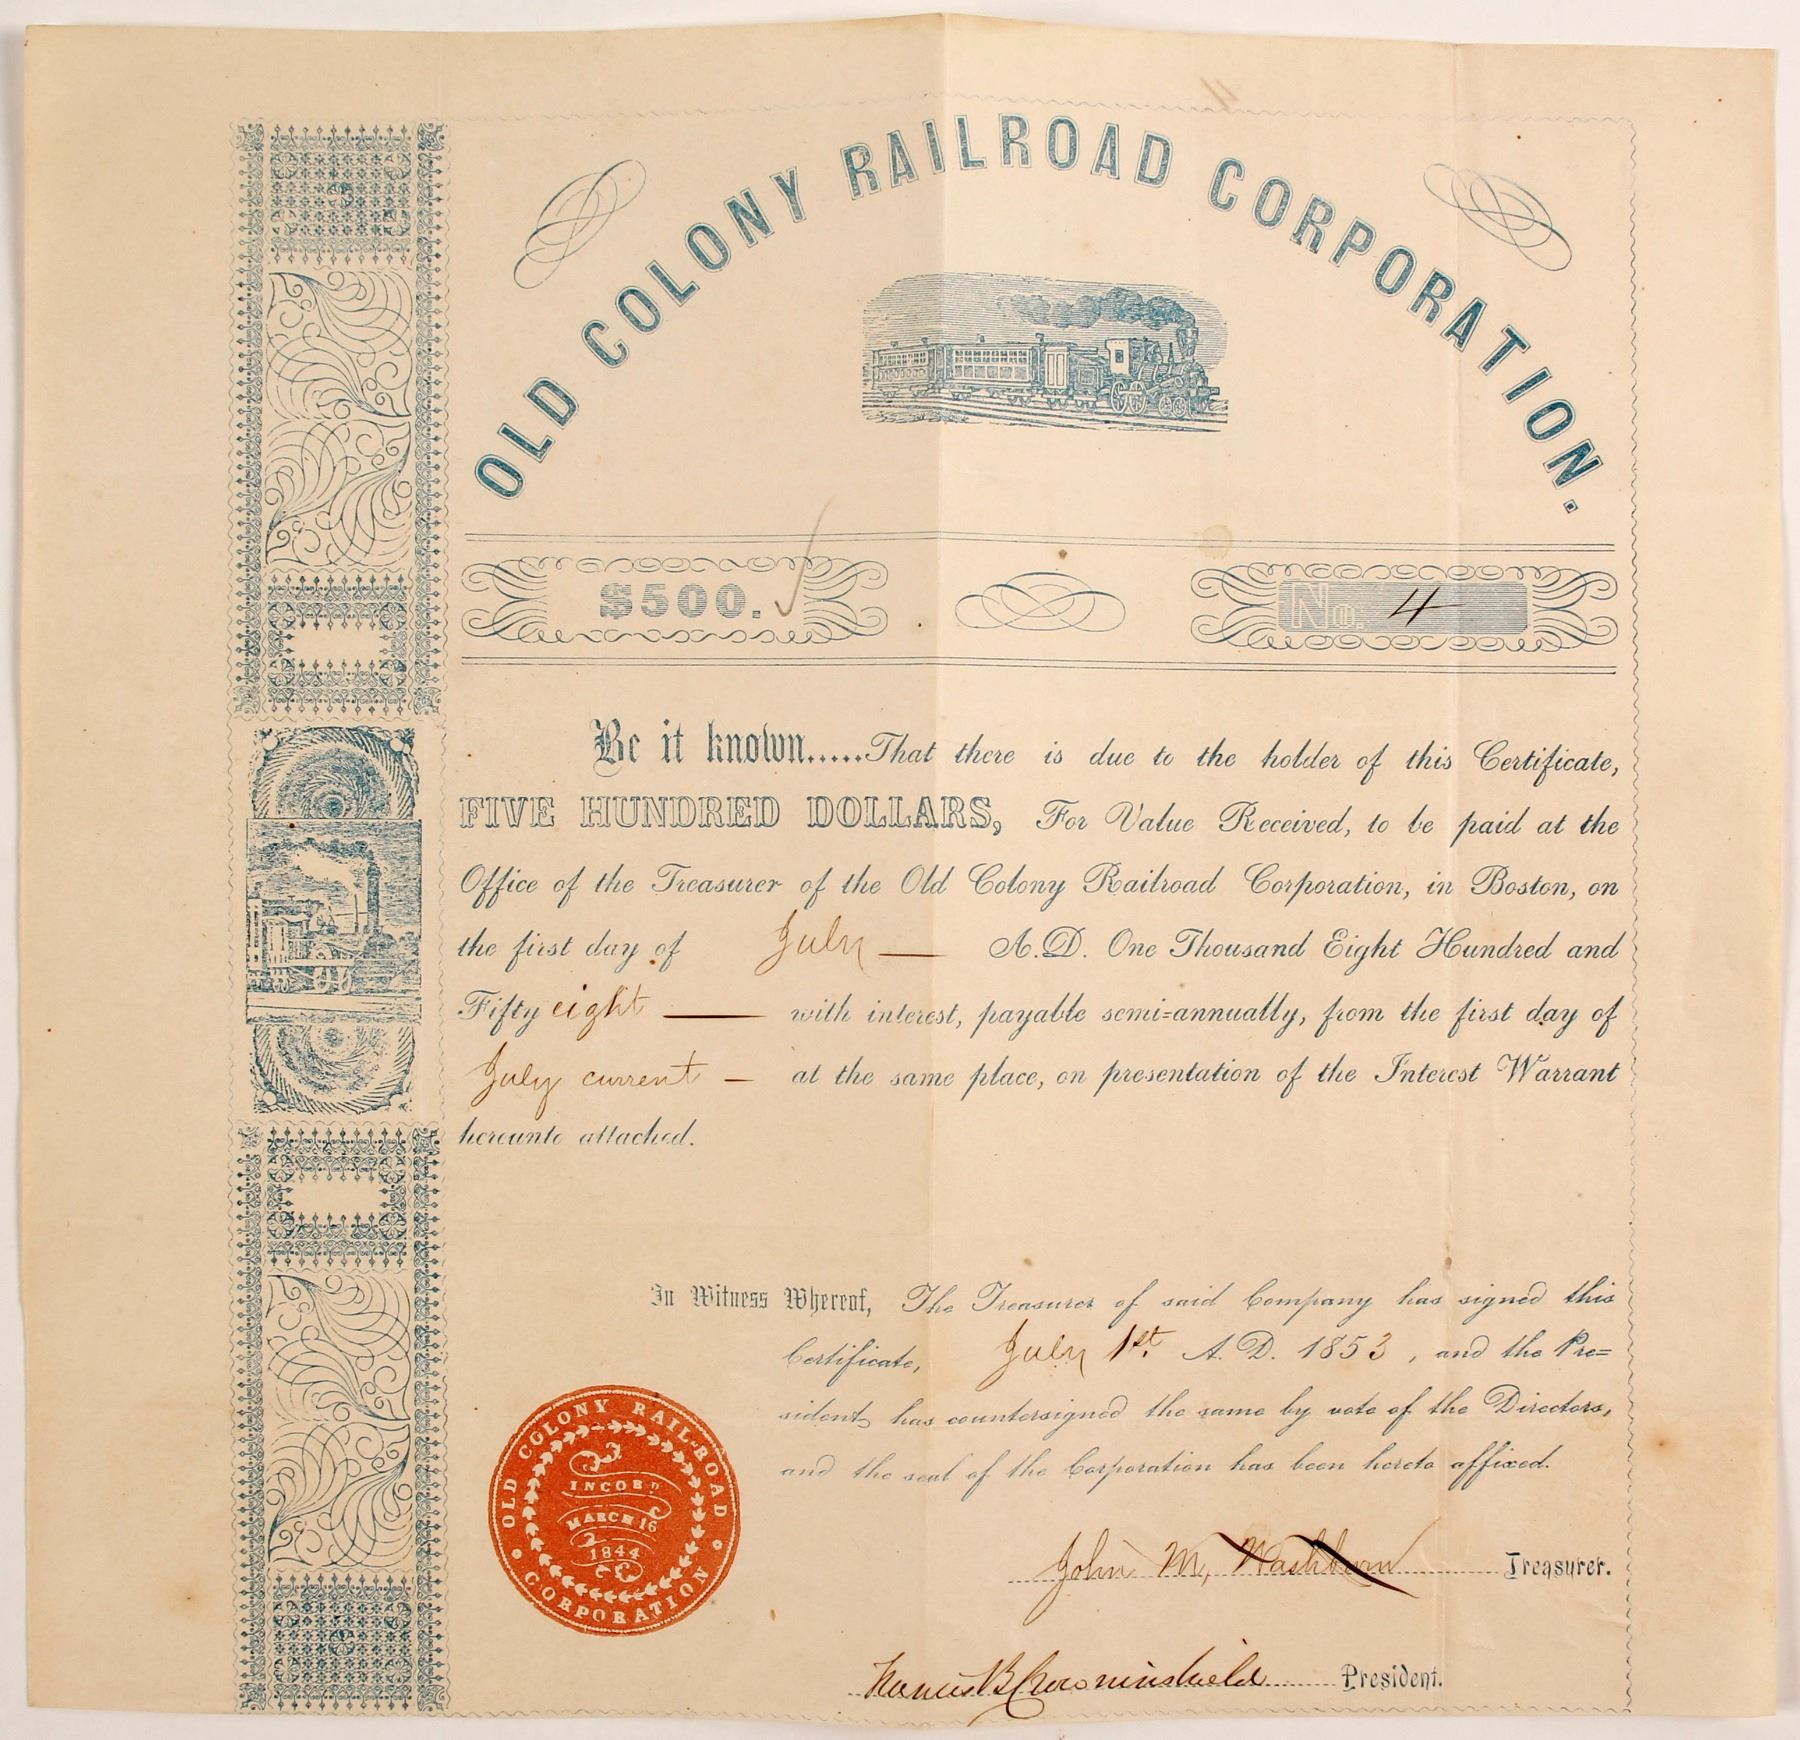 4
OLD COLONY RAILROAD CORPORATION.
$500.
No. 4
Be it known.....That there is due to the holder of this Certificate,
FIVE HUNDRED DOLLARS, For Value Received, to be paid at the
Office of the Treasurer of the Old Colony Railroad Corporation, in Boston, on
the first day of July — A.D. One Thousand Eight Hundred and
Fifty eight — with interest, payable semi=annually, from the first day of
July current — at the same place, on presentation of the Interest Warrant
hereunto attached.
In Witness Whereof, The Treasurer of said Company has signed this
Certificate, July 1st. A.D. 1853, and the Pre=
sident has countersigned the same by vote of the Directors,
and the seal of the Corporation has been hereto affixed.
OLD COLONY RAIL-ROAD
INCORD.
MARCH 16
1844
CORPORATION
John M, Washburn Treasurer.
Francis B Crowninshield President.